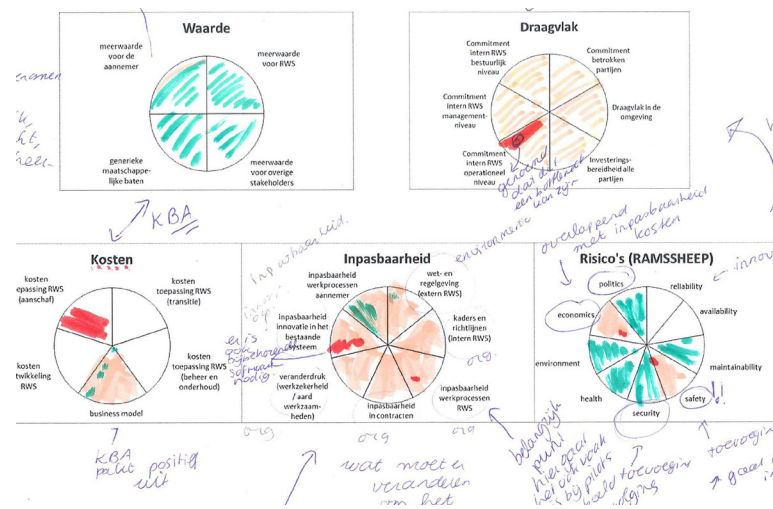 Waarde
meerwaarde
voor de
aannemer
meerwaarde
voor RWS
generieke
maatschappe-
lijke baten
meerwaarde
voor overige
stakeholders
Draagvlak
Commitment
intern RWS
bestuurlijk
niveau
Commitment
betrokken
partijen
Commitment
intern RWS
management-
niveau
Draagvlak in de
omgeving
Commitment
intern RWS
operationeel
niveau
Investerings-
bereidheid alle
partijen
genoemd
dat dit
een
van zijn
KBA
overlappend
met inpasbaarheid
kosten
Kosten
kosten
epassing RWS
(aanschaf)
kosten
toepassing RWS
(transitie)
kosten
twikkeling
RWS
kosten
toepassing RWS
(beheer en
onderhoud)
business model
KBA
pakt positief
uit
inpasbaarheid.
Inpasbaarheid
inpasbaarheid
werkprocessen
aannemer
wet- en
regelgeving
(extern RWS)
inpasbaarheid
innovatie in het
bestaande
systeem
kaders en
richtlijnen
(intern RWS)
er is
ook
bijbehorende
software
nodig.
org.
veranderdruk
(werkzekerheid /
aard
werkzaam-
heden)
inpasbaarheid
in contracten
inpasbaarheid
werkprocessen
RWS
org
org
org
wat moet er
veranderen
om het
Risico's (RAMSSHEEP)
politics
reliability
economics
availability
environment
maintainability
health
safety
!!
security
belangrijk
punt
hier gaat
het ook vaak
bij pilots
toevoeging